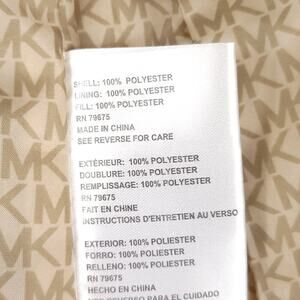 SHELL: 100% POLYESTER
LINING: 100% POLYESTER
FILL: 100% POLYESTER
RN 79675
MADE IN CHINA
SEE REVERSE FOR CARE
EXTÉRIEUR: 100% POLYESTER
DOUBLURE: 100% POLYESTER
REMPLISSAGE: 100% POLYESTER
RN 79675
FAIT EN CHINE
INSTRUCTIONS D'ENTRETIEN AU VERSO
EXTERIOR: 100% POLIESTER
FORRO: 100% POLIESTER
RELLENO: 100% POLIESTER
RN 79675
HECHO EN CHINA
VER REVERSO PARA EL CUIDADO